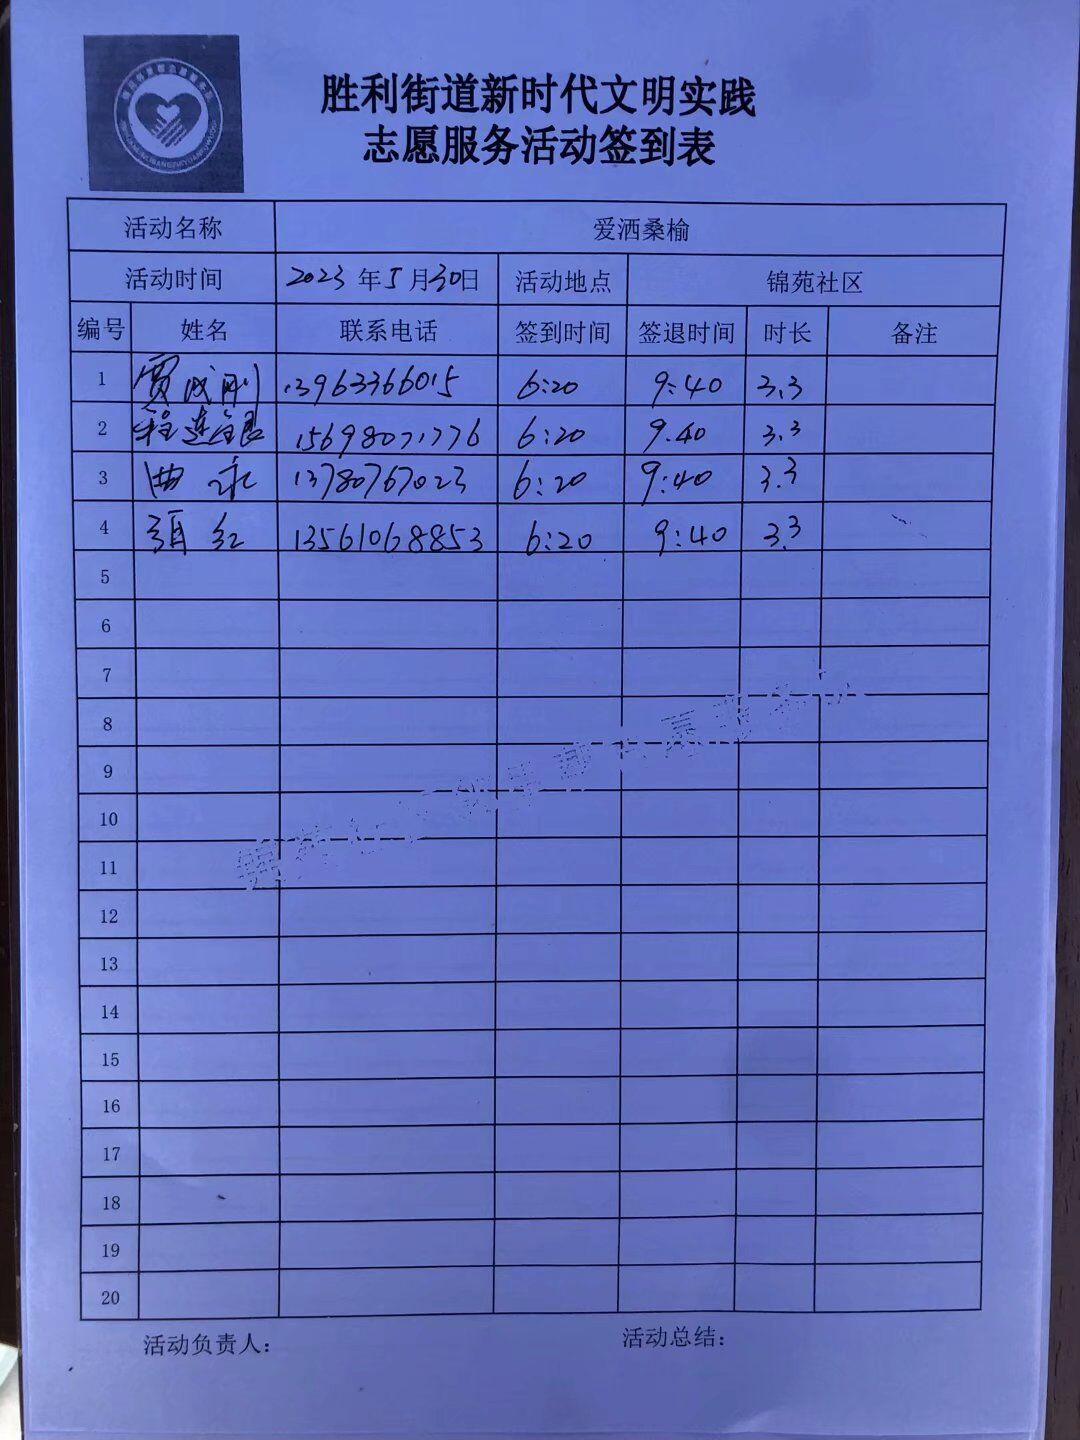 胜利街道新时代文明实践
志愿服务活动签到表
活动名称 爱洒桑榆
活动时间 2023年5月30日 活动地点 锦苑社区
编号 姓名 联系电话 签到时间 签退时间 时长 备注
1 贾成刚 13963366015 6:20 9:40 3.3
2 程连银 15698071776 6:20 9.40 3.3
3 曲永 13780767023 6:20 9:40 3.3
4 红 13561068853 6:20 9:40 3.3
5
6
7
8
9
10
11
12
13
14
15
16
17
18
19
20
活动负责人： 活动总结：